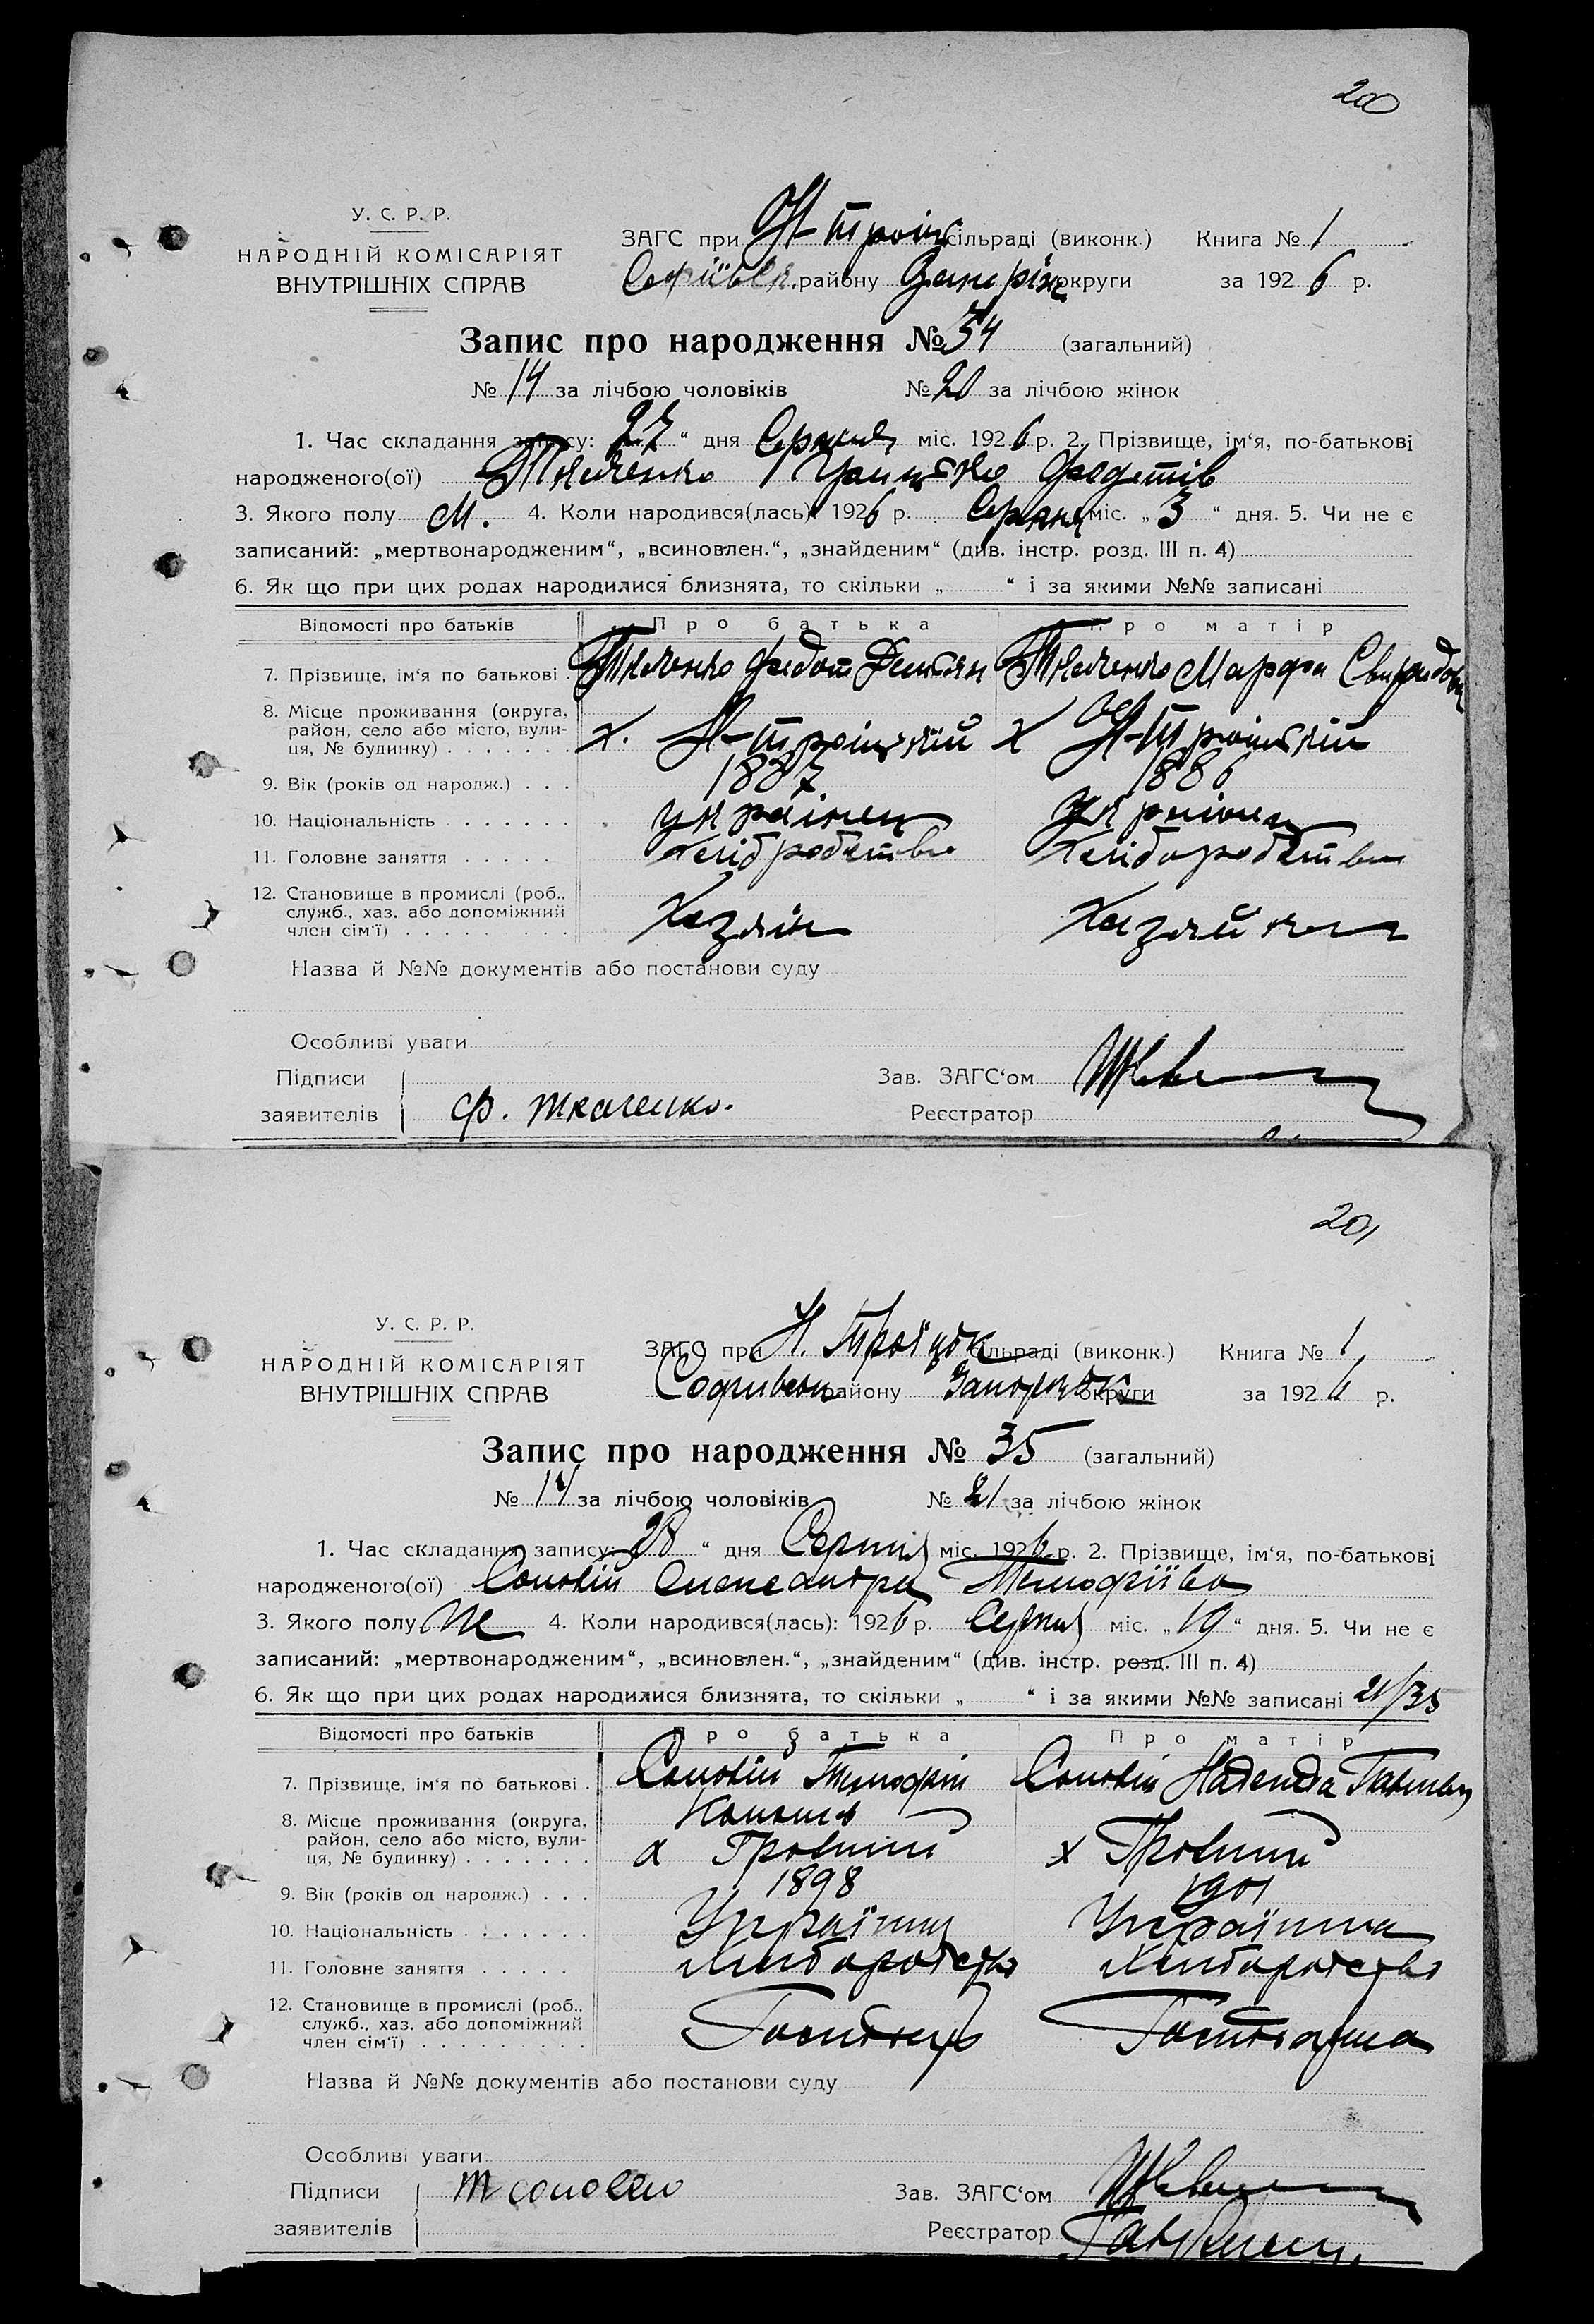 200
У. С. Р. Р.
НАРОДНІЙ КОМІСАРІЯТ
ВНУТРІШНІХ СПРАВ
ЗАГС при Н-Троіцк сільраді (виконк.) Книга № 1
Софіївск. району Запоріж округи за 1926 р.
Запис про народження № 34 (загальний)
№ 14 за лічбою чоловіків № 20 за лічбою жінок
1. Час складання запису: 27 “ дня Серпня міс. 1926 р. 2. Прізвище, ім‘я, по-батькові
народженого(ої) Ткаченко Грицько Федотів
3. Якого полу М. 4. Коли народився(лась): 1926 р. Серпня міс. „ 3 “ дня. 5. Чи не є
записаний: „мертвонародженим“, „всиновлен.“, „знайденим“ (див. інстр. розд. III п. 4)
6. Як що при цих родах народилися близнята, то скільки „ “ і за якими №№ записані
Відомості про батьків Про батька Про матір
7. Прізвище, ім‘я по батькові . Ткаченко Федот Демян Ткаченко Марфа Свиридов
8. Місце проживання (округа,
район, село або місто, вули-
ця, № будинку) . . . . . . . х. Н-Троіцкий х Н-Троіцкий
9. Вік (років од народж.) . . . 1887 1886
10. Національність . . . . . . . украінец украінец
11. Головне заняття . . . . . хлібробство хліборобство
12. Становище в промислі (роб.,
служб., хаз. або допоміжний
член сім‘ї) . . . . . . . . . Хазяін Хазяйка
Назва й №№ документів або постанови суду
Особливі уваги
Підписи Зав. ЗАГС‘ом
заявителів ф. ткаченко. Реєстратор
201
У. С. Р. Р.
НАРОДНІЙ КОМІСАРІЯТ
ВНУТРІШНІХ СПРАВ
ЗАГС при Н. Троїцьк сільраді (виконк.) Книга № 1
Софиївськ району Запорізьк округи за 1926 р.
Запис про народження № 35 (загальний)
№ 14 за лічбою чоловіків № 21 за лічбою жінок
1. Час складання запису: 28 “ дня Серпня міс. 1926 р. 2. Прізвище, ім‘я, по-батькові
народженого(ої) Соловій Олександра Тимофіїва
3. Якого полу Ж 4. Коли народився(лась): 1926 р. Серпня міс. „ 19 “ дня. 5. Чи не є
записаний: „мертвонародженим“, „всиновлен.“, „знайденим“ (див. інстр. розд. III п. 4)
6. Як що при цих родах народилися близнята, то скільки „ “ і за якими №№ записані 21/35
Відомості про батьків Про батька Про матір
7. Прізвище, ім‘я по батькові . Соловій Тимофій Соловій Надежда Павлівн
8. Місце проживання (округа,
район, село або місто, вули-
ця, № будинку) . . . . . . . х х
9. Вік (років од народж.) . . . 1898 1901
10. Національність . . . . . . . Українец Українка
11. Головне заняття . . . . . Хліборобство Хліборобство
12. Становище в промислі (роб.,
служб., хаз. або допоміжний
член сім‘ї) . . . . . . . . . Господарь Господарка
Назва й №№ документів або постанови суду
Особливі уваги
Підписи Зав. ЗАГС‘ом
заявителів Реєстратор